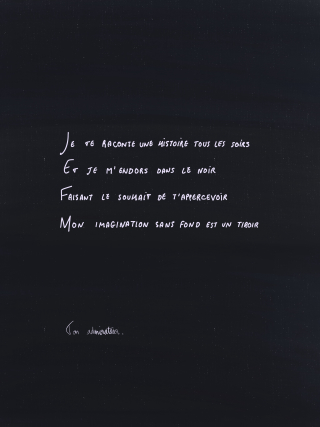 Je te raconte une histoire tous les soirs
Et je m'endors dans le noir
Faisant le souhait de t'appercevoir
Mon imagination sans fond est un tiroir
Ton admirateur.